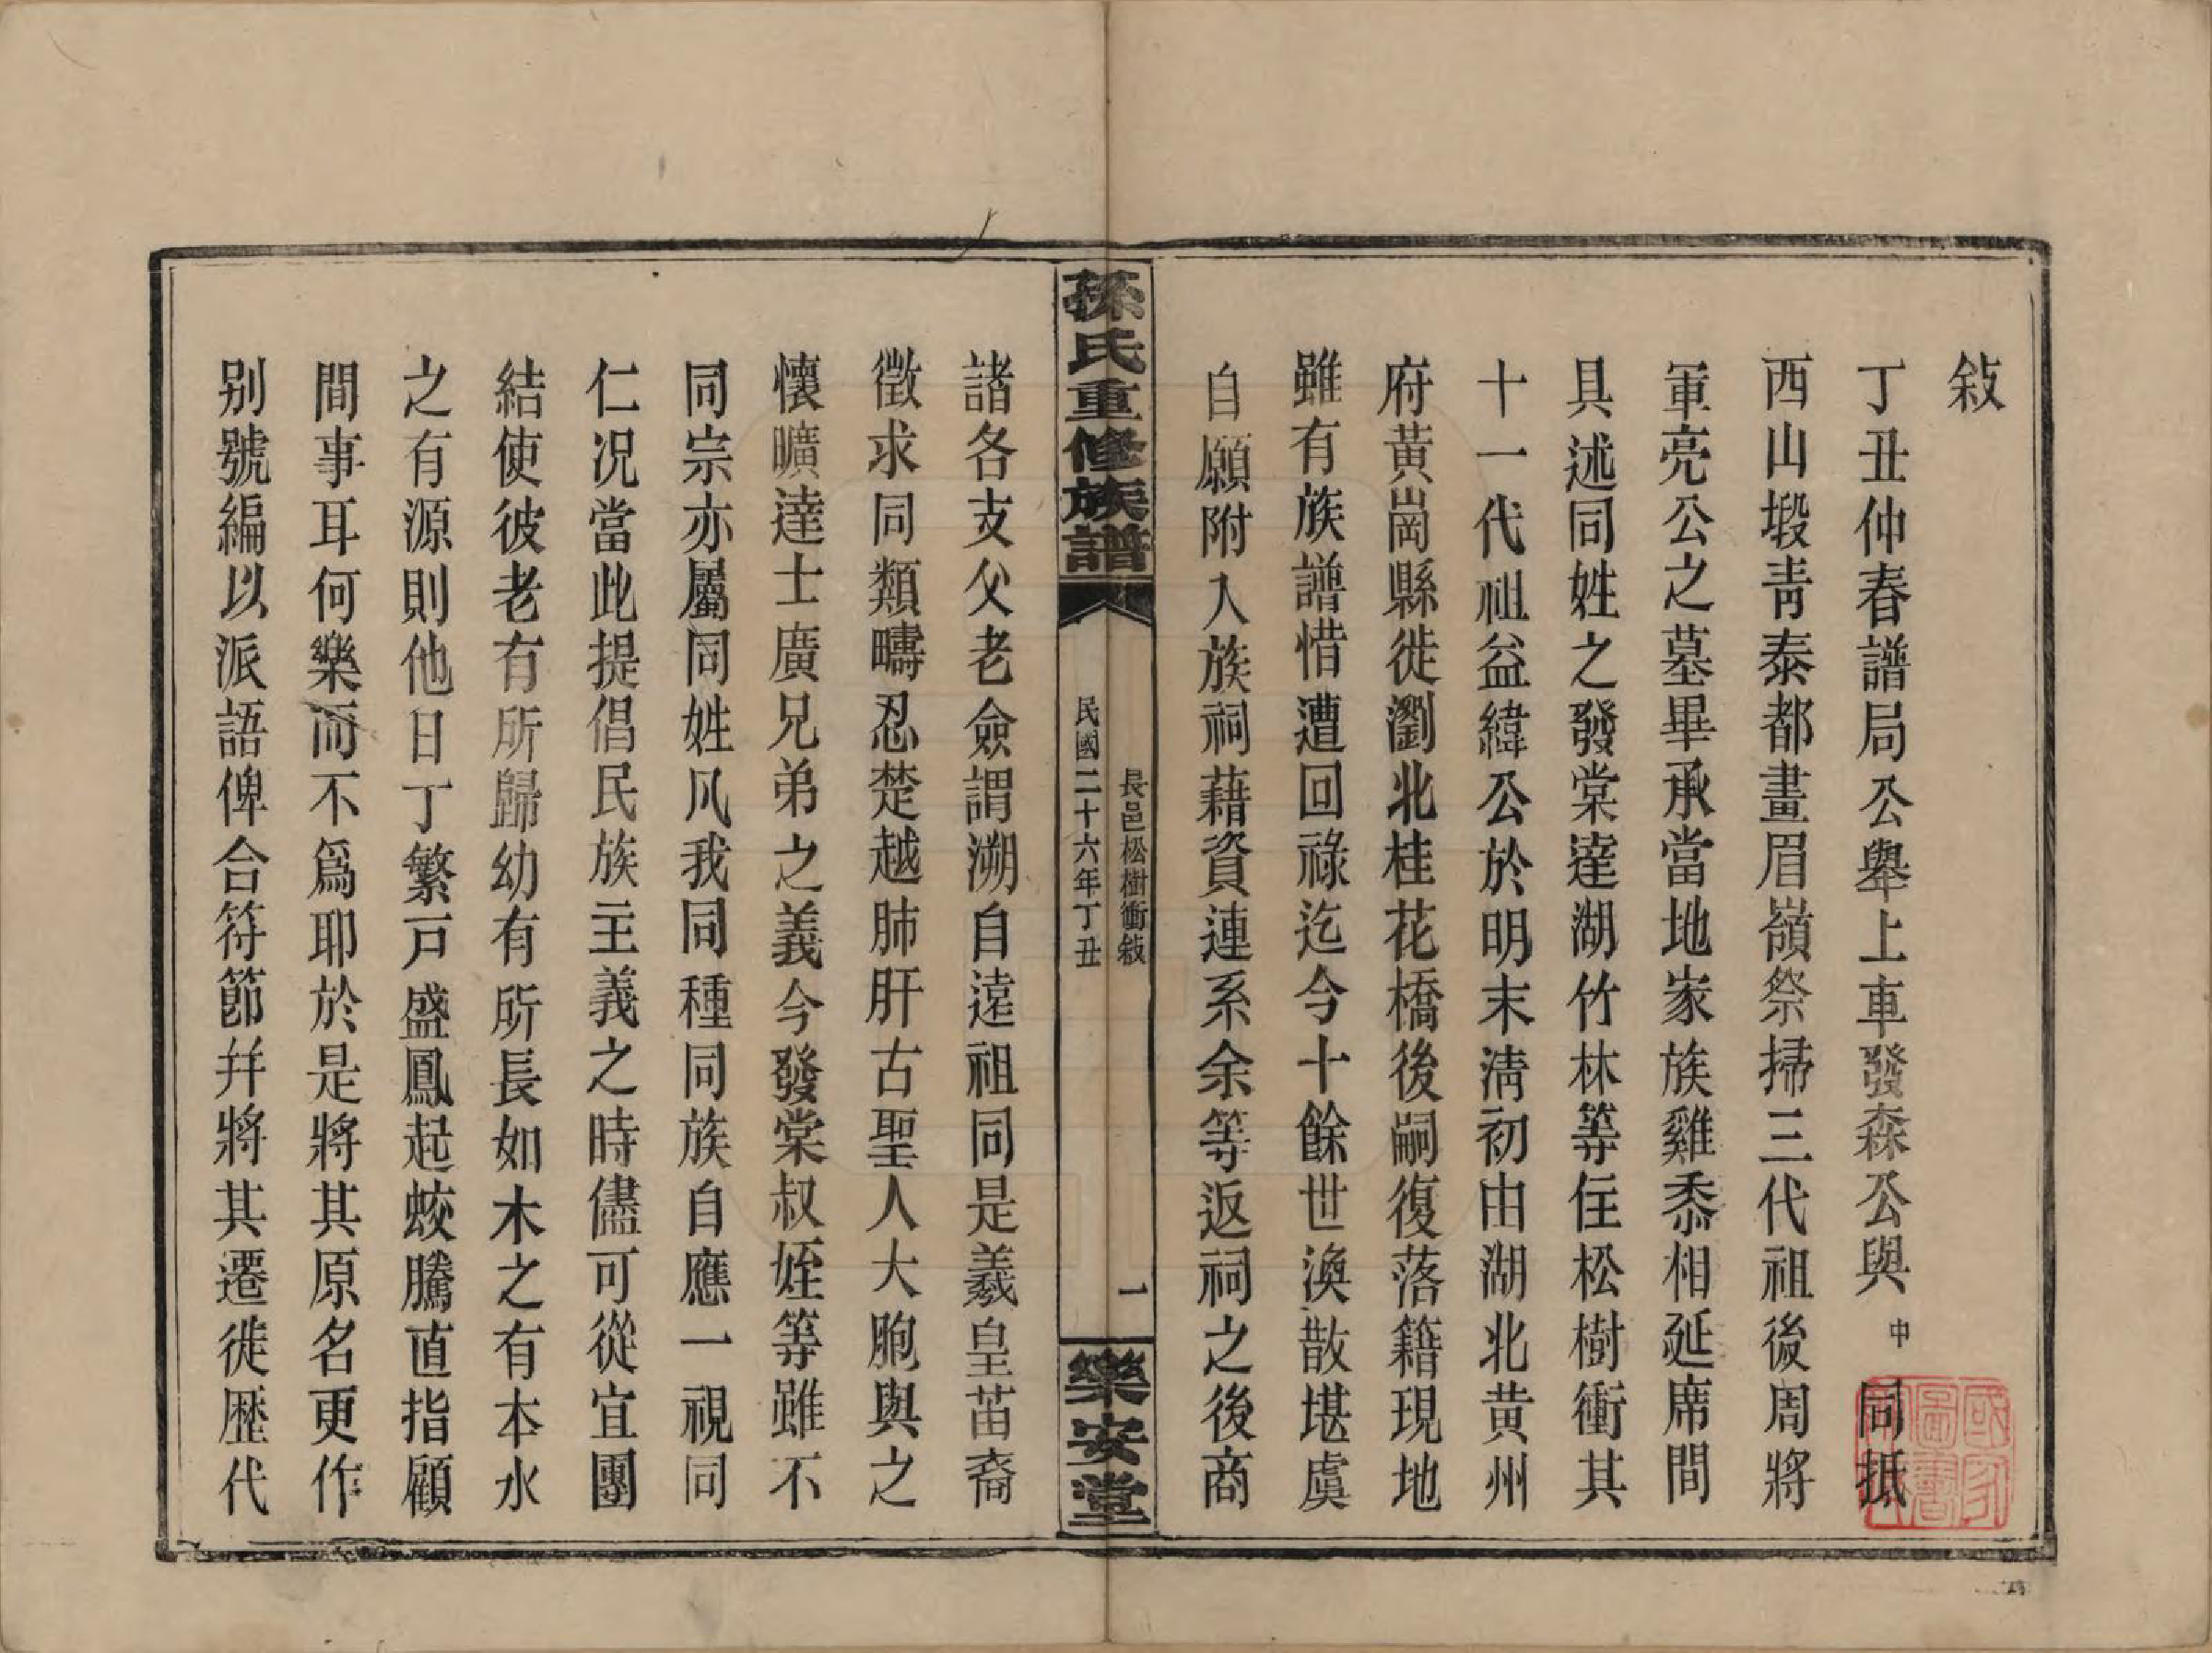 敍
丁丑仲春譜局公舉上車發森公與中同抵
西山塅靑泰都畫眉嶺祭掃三代祖後周將
軍亮公之墓畢承當地家族雞黍相延席間
具述同姓之發棠達湖竹林等住松樹衝其
十一代祖益緯公於明末淸初由湖北黄州
府黃崗縣徙瀏北桂花橋後嗣復落籍現地
雖有族譜惜遭回祿迄今十餘世渙散堪虞
自願附入族祠藉資連系余等返祠之後商
孫氏重修族譜
長邑松樹衝敍
民國二十六年丁丑
一
樂安堂
諸各支父老僉謂溯自遠祖同是羲皇苗裔
徵求同類疇忍楚越肺肝古聖人大胞與之
懷曠達士廣兄弟之義今發棠叔姪等雖不
同宗亦屬同姓凡我同種同族自應一視同
仁况當此提倡民族主義之時儘可從宜團
結使彼老有所歸幼有所長如木之有本水
之有源則他日丁繁戸盛鳳起蛟騰直指顧
間事耳何樂而不爲耶於是將其原名更作
别號編以派語俾合符節幷將其遷徙歴代